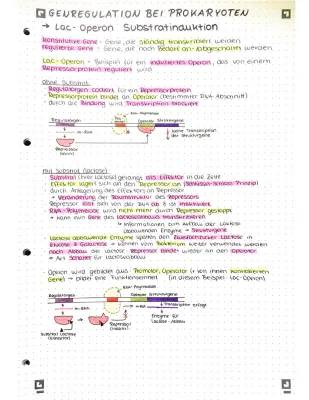 GENREGULATION BEI PROKARYOTEN
→ Lac-Operon Substratinduktion
konstitutive Gene - Gene, die ständig transkribiert werden
regulierte Gene - Gene, die nach Bedarf an-/abgeschaltet werden
Lac-Operon - Beispiel für ein induzierbares Operon, das von einem
Repressorprotein reguliert wird
ohne Substrat
- Regulatorgen codiert für ein Repressorprotein
- Repressorprotein bindet an Operator (bestimmter DNA Abschnitt)
- durch die Bindung wird Transkription blockiert
Regulatorgen
RNA-Polymerase
Operator Strukturgene
m-RNA
Repressor
(aktiv)
keine Transkription
der Strukturgene
mit Substrat (Lactose)
- Substrat (hier Lactose) gelangt als Effektor in die Zelle
- Effektor lagert sich an den Repressor an (Schlüssel-Schloss Prinzip)
- durch Anlagerung des Effektors an Repressor
→ Veränderung der Raumstruktur des Repressors
- Repressor löst sich von der DNA ab & ist inaktiviert
- RNA-Polymerase wird nicht mehr durch Repressor gestoppt
→ kann nun Gene des Lactoseabbaus transkribieren
→ Informationen zum Aufbau der Lactose
abbauenden Enzyme → Strukturgene
- Lactose abbauende Enzyme spalten den Zweifachzucker Lactose in
Glukose & Galactose → können vom Bakterium weiter verwendet werden
- nach Abbau der Lactose: Repressor bindet wieder an den Operator
→ Art Schalter für Lactoseabbau
- Operon wird gebildet aus: Promotor, Operator & von ihnen kontrollierten
Genen → bildet eine Funktionseinheit (in diesem Beispiel Lac-Operon)
Regulatorgen
RNA-Polymerase
Operator Strukturgene
m-RNA
Transkription erfolgt
Substrat Lactose
(Effektor)
Repressor
(inaktiv)
Enzyme für
Lactose-Abbau